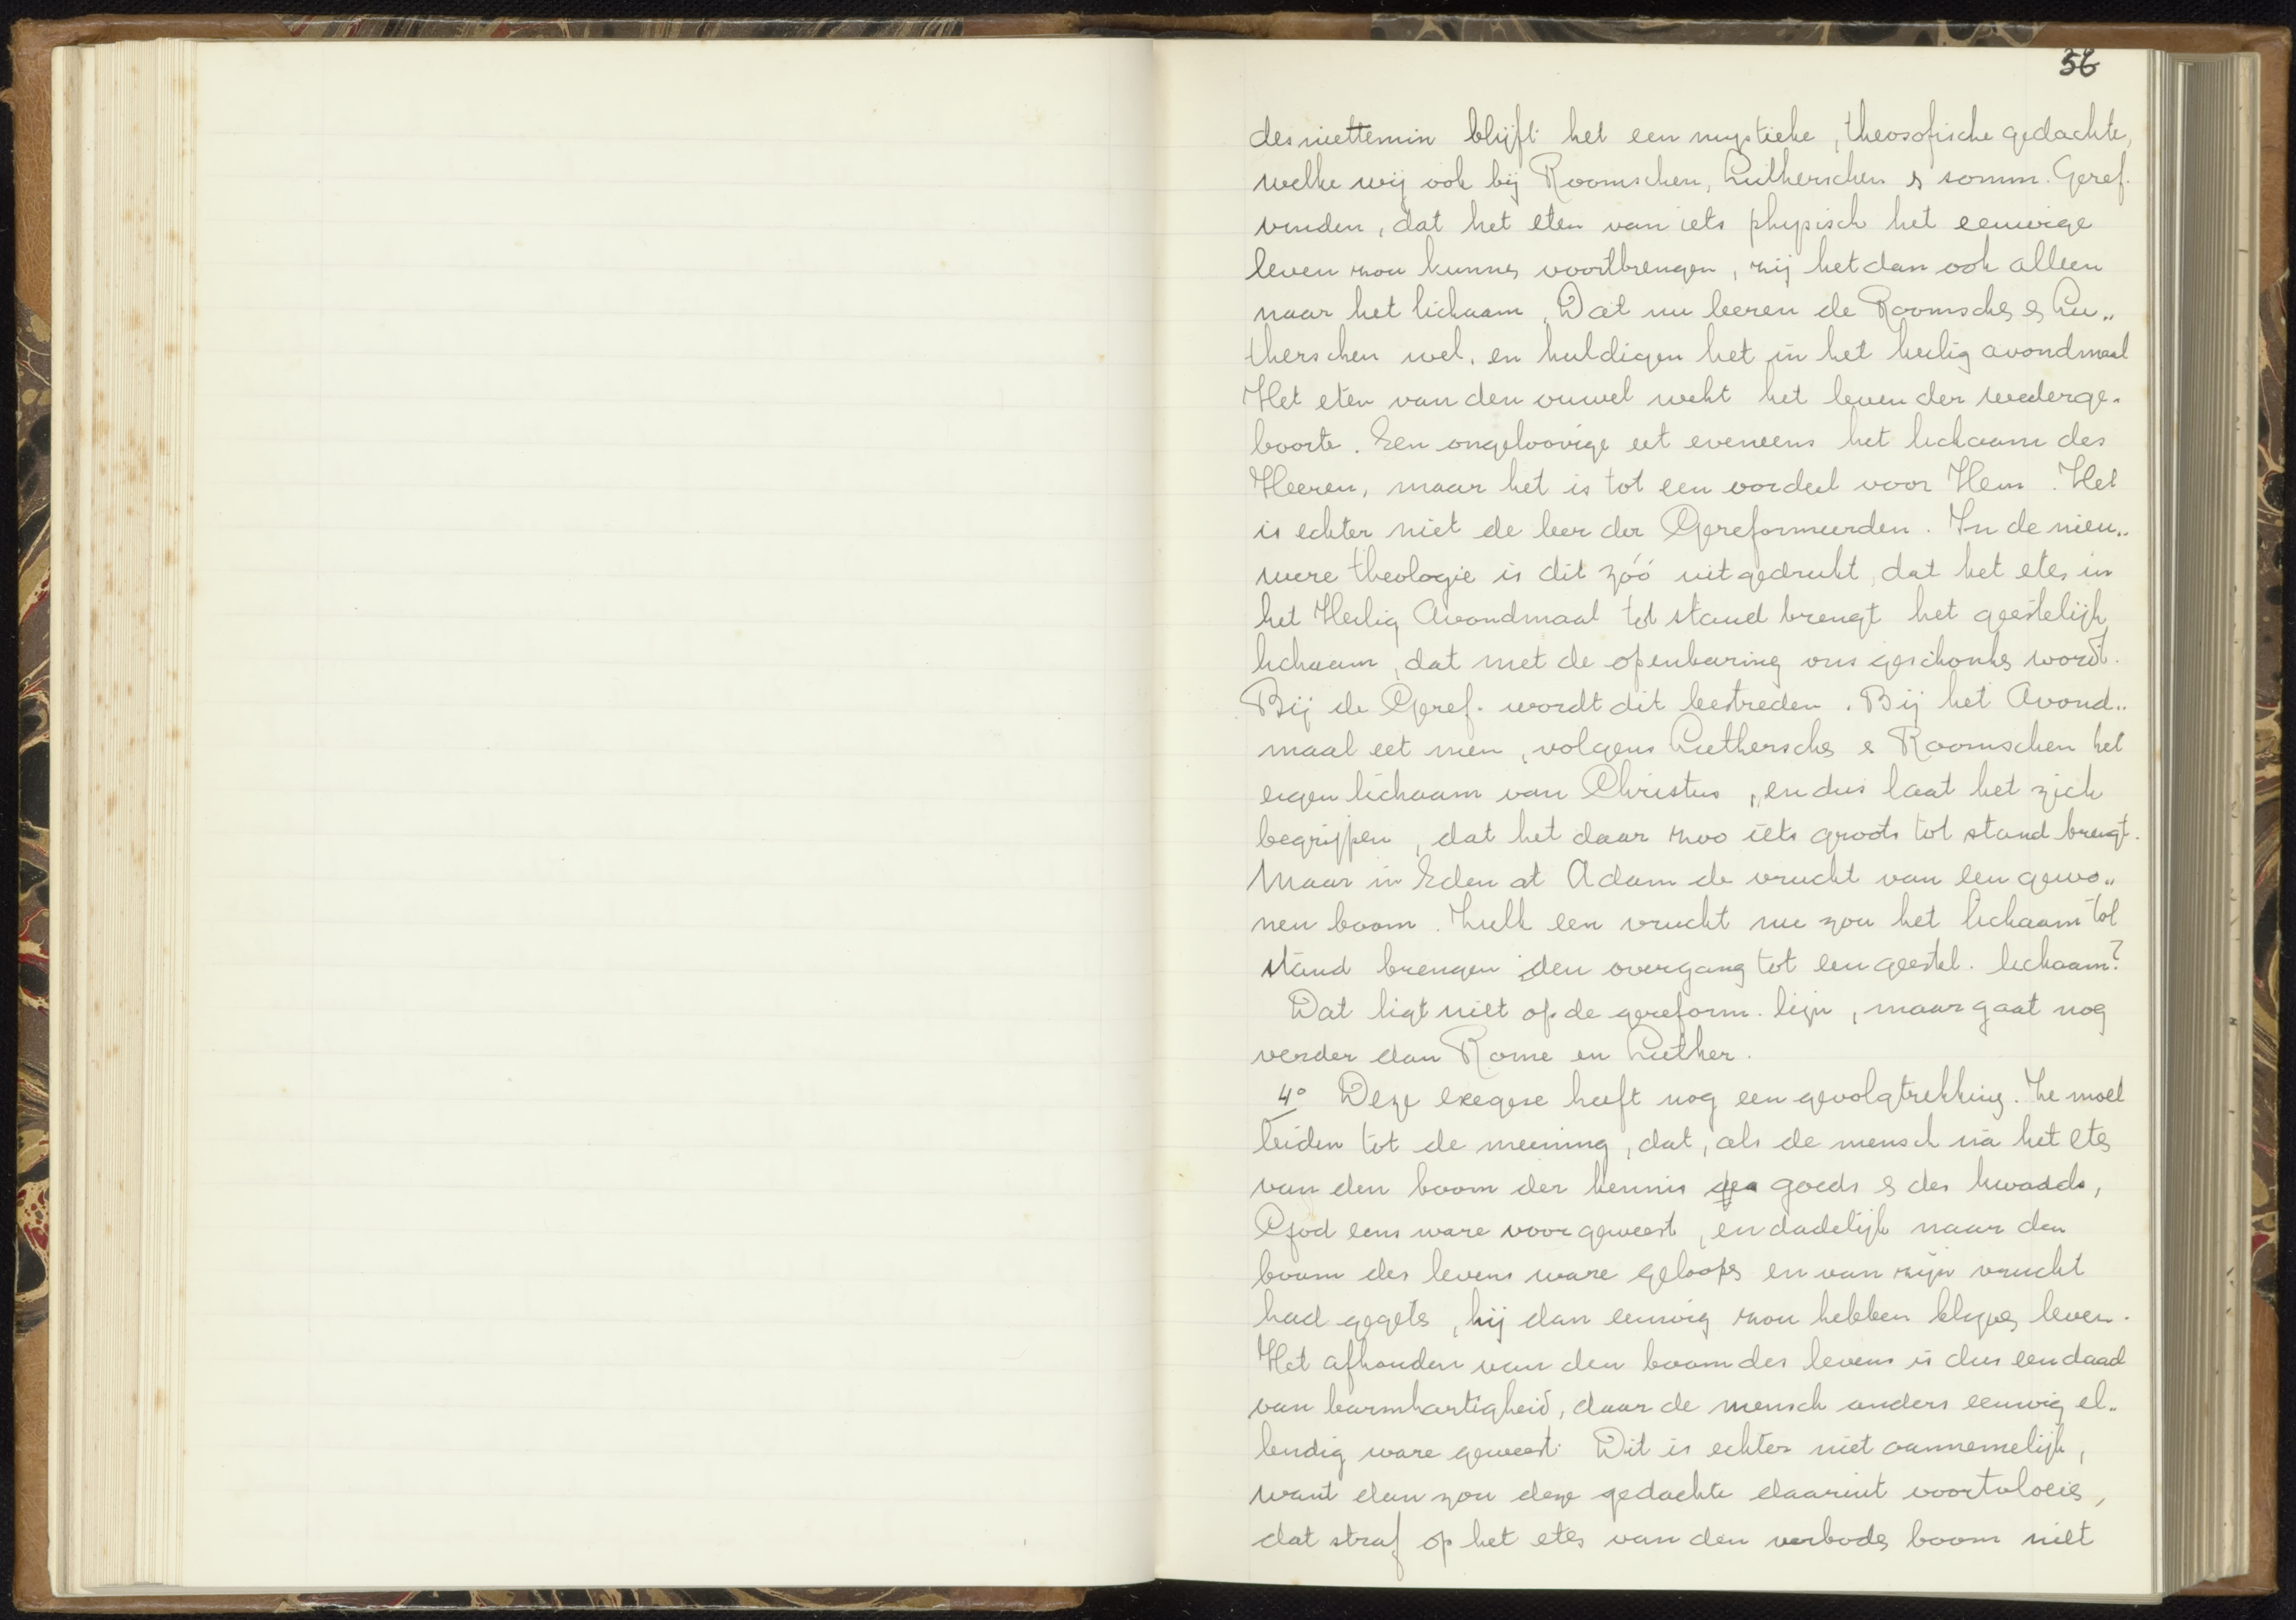 56
desniettemin blijft het een mystieke, theosofische gedachte,
welke wij ook bij Roomschen, Lutherschen & somm. Geref.
vinden, dat het eten van iets physisch het eeuwige
leven zou kunnen voortbrengen, zij het dan ook alleen
naar het lichaam. Dat nu leeren de Roomschen & Lu„
therschen wel, en huldigen het in het heilig avondmaal
Het eten van den ouwel wekt het leven der wederge„
boorte. Een ongeloovige eet eveneens het lichaam des
Heeren, maar het is tot een oordeel voor Hem. Het
is echter niet de leer der Gereformeerden. In de nieu„
were theologie is dit zóó uitgedrukt, dat het eten in
het Heilig Avondmaal tot stand brengt het geestelijk
lichaam, dat met de openbaring ons geschonken wordt.
Bij de Geref. wordt dit bestreden. Bij het Avond„
maal eet men, volgens Lutherschen & Roomschen het
eigen lichaam van Christus, en dus laat het zich
begrijpen, dat het daar zoo iets groots tot stand brengt.
Maar in Eden at Adam de vrucht van een gewo„
nen boom. Zulk een vrucht nu zou het lichaam tot
stand brengen den overgang tot een geestel. lichaam?
Dat ligt niet op de gereform. lijn, maar gaat nog
verder dan Rome en Luther.
4° Deze exegese heeft nog een gevolgtrekking. Ze moet
leiden tot de meening, dat, als de mensch na het eten
van den boom der kennis des goeds & des kwaads,
God eens ware voor geweest, en dadelijk naar den
boom des levens ware geloopen en van zijn vrucht
had gegeten, hij dan eeuwig zou hebben blijven leven.
Het afhouden van den boom des levens is dus een daad
van barmhartigheid, daar de mensch anders eeuwig el„
lendig ware geweest. Dit is echter niet aannemelijk,
want dan zou deze gedachte daaruit voortvloeien,
dat straf op het eten van den verboden boom niet